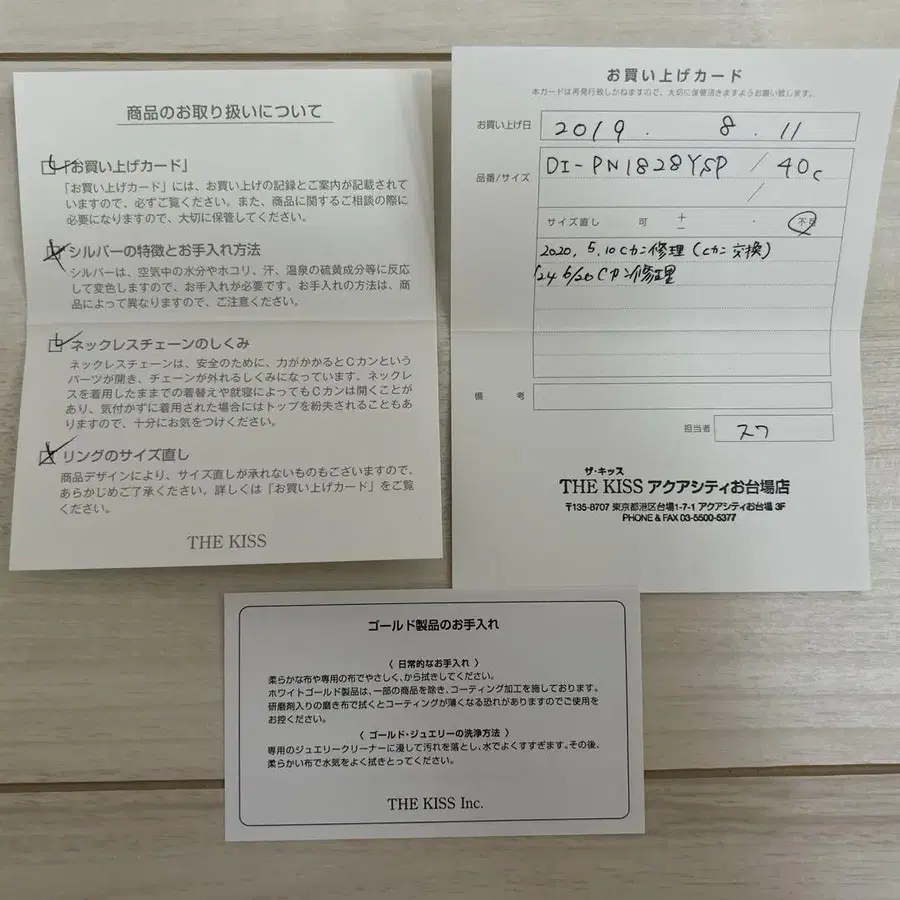 商品のお取り扱いについて
「お買い上げカード」
「お買い上げカード」には、お買い上げの記録とご案内が記載されて
いますので、必ずご覧ください。また、商品に関するご相談の際に
必要になりますので、大切に保管してください。
シルバーの特徴とお手入れ方法
シルバーは、空気中の水分やホコリ、汗、温泉の硫黄成分等に反応
して変色しますので、お手入れが必要です。お手入れの方法は、商
品によって異なりますので、ご注意ください。
ネックレスチェーンのしくみ
ネックレスチェーンは、安全のために、力がかかるとCカンという
パーツが開き、チェーンが外れるしくみになっています。ネックレ
スを着用したままでの着替えや就寝によってもCカンは開くことが
あり、気付かずに着用された場合にはトップを紛失されることもあ
りますので、十分にお気をつけください。
リングのサイズ直し
商品デザインにより、サイズ直しが承れないものもございますので、
あらかじめご了承ください。詳しくは「お買い上げカード」をご覧
ください。
THE KISS
お買い上げカード
本カードは再発行致しかねますので、大切に保管頂きますようお願い致します。
お買い上げ日 2019. 8. 11
品番/サイズ DI-PN1828YSP / 40c
/
サイズ直し 可 + - ・ 不可
2020, 5, 10 Cカン修理 (Cカン交換)
'24 6/20 Cカン修理
備考
担当者 スワ
ザ・キッス
THE KISS アクアシティお台場店
〒135-8707 東京都港区台場1-7-1 アクアシティお台場 3F
PHONE & FAX 03-5500-5377
ゴールド製品のお手入れ
〈 日常的なお手入れ 〉
柔らかな布や専用の布でやさしく、から拭きしてください。
ホワイトゴールド製品は、一部の商品を除き、コーティング加工を施しております。
研磨剤入りの磨き布で拭くとコーティングが薄くなる恐れがありますのでご使用を
お控ください。
〈 ゴールド・ジュエリーの洗浄方法 〉
専用のジュエリークリーナーに浸して汚れを落とし、水でよくすすぎます。その後、
柔らかい布で水気をよく拭きとってください。
THE KISS Inc.